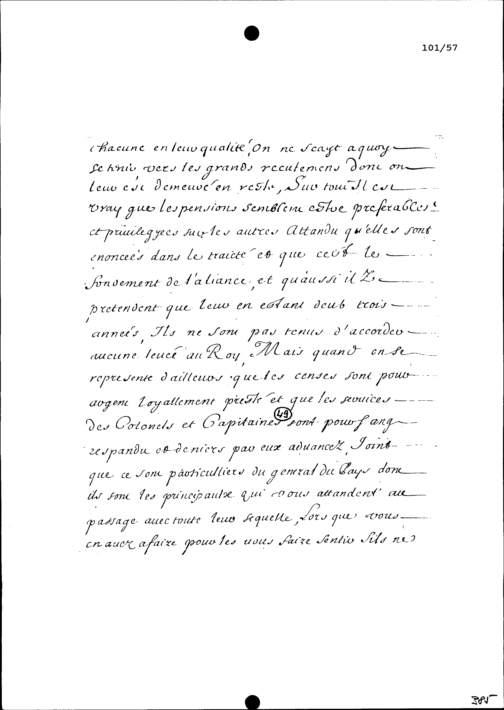 101/57
chacune en leur qualité, On ne scayt a quoy
se tenir vers les grands reculemens dont on
leur est demeuré en reste, Sur tout Il est
vray que les pensions semblent estre preferables
et privilegyees sur les autres Attandu qu'elles sont
enoncées dans le traicté et que cest le
fondement de l'aliance, et qu'aussi ilz
pretendent que leur en estant deub trois
années, Ils ne sont pas tenus d'accorder
aucune levée au Roy, Mais quand on se
represente d'ailleurs que les censes sont pour
argent Loyallement presté et que les services
Des Colonels et Capitaines sont pour sang
49
respandu et deniers par eux advancez, Joint
que ce sont particulliers du general du Pays dont
ils sont les principaulx qui vous attandent au
passage avec toute leur sequelle, Lors que vous
en avez afaire pour les vous faire sentir Sils ne
385